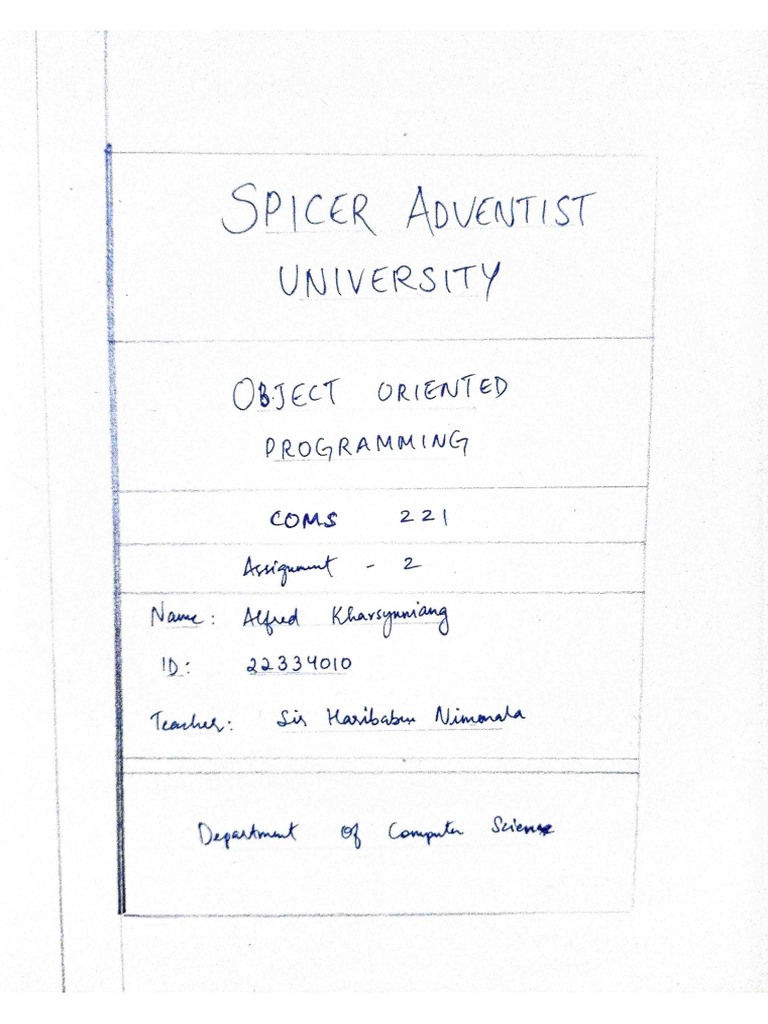 SPICER ADVENTIST
UNIVERSITY
OBJECT ORIENTED
PROGRAMMING
COMS 221
Assignment - 2
Name: Alfred Kharsynniang
ID: 22334010
Teacher: Sir Haribabu Nimmala
Department Of Computer Science